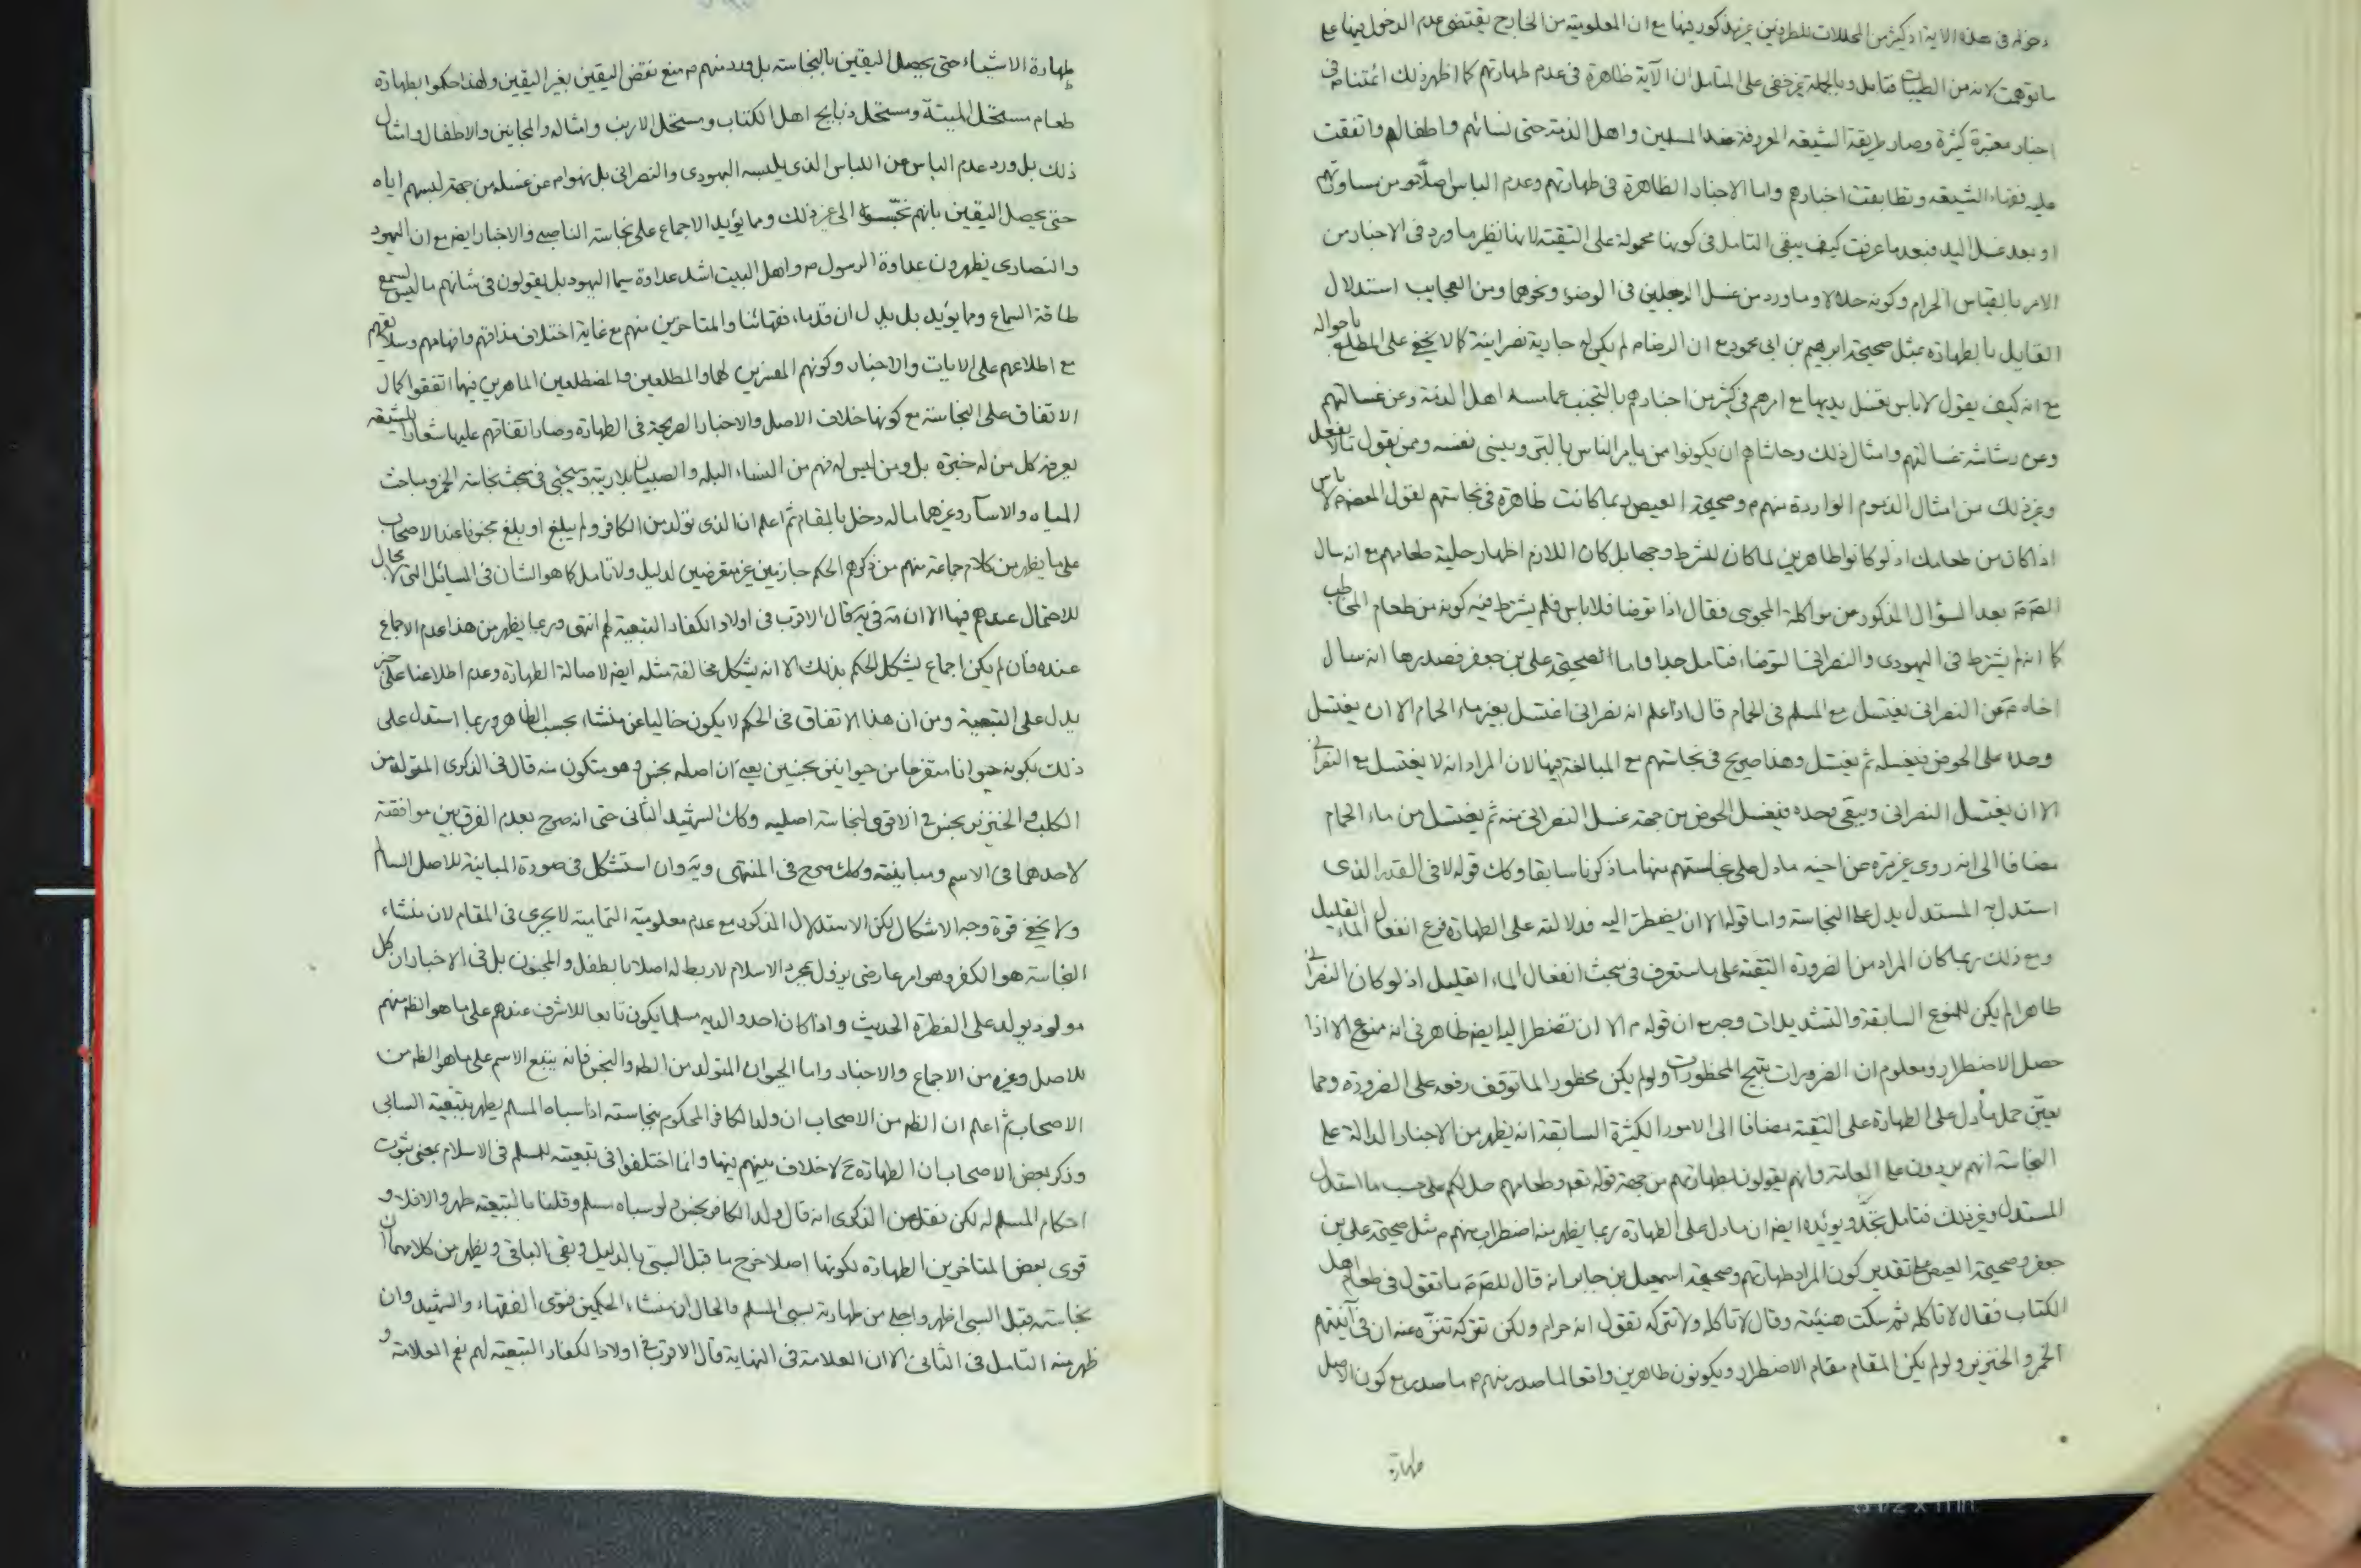 دخوله فى هذه الاية اذ كثير من المحللات للطرفين غير مذكور فيها مع ان المعلومية من الخارج يقتضى عدم الدخول فيها على
ما توهمت لانه من الطيبات فتامل وبالجملة غير خفى على المتامل ان الآية ظاهرة فى عدم طهارتهم كما اظهر ذلك ائمتنا م فى
اخبار معتبرة كثيرة وصار طريقة الشيعة المعروفة عند المسلمين واهل الذمة حتى نسائهم واطفالهم واتفقت
عليه فقهاء الشيعة وتطابقت اخبارهم واما الاخبار الظاهرة فى طهارتهم وعدم الباس اصلا من مساورتهم
او بعد غسل اليد فبعد ما عرفت كيف يبقى التامل فى كونها محمولة على التقية لانها نظير ما ورد فى الاخبار من
الامر بالقياس الحرام وكونه حلالا وما ورد من غسل الرجلين فى الوضوء ونحوهما ومن العجايب استدلال
القايل بالطهارة بمثل صحيحة ابرهيم بن ابى محمود مع ان الرضا م لم يكن له جارية نصرانية كما لا يخفى على المطلع باحواله
مع انه كيف يقول لا باس تغسل يديها مع امرهم فى كثير من اخبارهم بالتجنب عما مسه اهل الذمة وعن غسالتهم
وعن رشاشة غسالتهم وامثال ذلك وحاشاهم ان يكونوا ممن يامر الناس بالبر وينسى نفسه وممن يقول ما لا يفعل
وغير ذلك من امثال الذموم الواردة منهم م وصحيحة العيص ربما كانت ظاهرة فى نجاستهم لقول المعصوم لا باس
اذا كان من طعامك اذ لو كانوا طاهرين لما كان للشرط وجه بل كان اللازم اظهار حلية طعامهم مع انه سال
الص م بعد السؤال المذكور عن مواكلة المجوسى فقال اذا توضا فلا باس فلم يشترط فيه كونه من طعام المخاطب
كما انه لم يشترط فى اليهودى والنصرانى التوضا، فتامل جدا واما الصحيحة على بن جعفر فصدرها انه سال
اخاه م عن النصرانى يغتسل مع المسلم فى الحمام قال اذا علم انه نصرانى اغتسل بغير ماء الحمام الا ان يغتسل
وحده على الحوض فيغسله ثم يغتسل وهذا صريح فى نجاستهم مع المبالغة فيها لان المراد انه لا يغتسل مع النصرانى
الا ان يغتسل النصرانى ويبقى وحده فيغسل الحوض من جهة غسل النصرانى منه ثم يغتسل من ماء الحمام
مضافا الى انه روى غير مرة عن اخيه ما دل على نجاستهم منها ما ذكرنا سابقا وكك قوله لا فى القدر الذى
استدل به المستدل يدل على النجاسة واما قوله الا ان يضطر اليه فدلالته على الطهارة فرع انفعال الماء القليل
ومع ذلك ربما كان المراد من الضرورة التقية على ما ستعرف فى مبحث انفعال الماء القليل اذ لو كان النصرانى
طاهرا لم يكن للمنوع السابقة والتشديدات وجه مع ان قوله م الا ان تضطر اليه ايضا ظاهر فى انه ممنوع الا اذا
حصل الاضطرار ومعلوم ان الضرورات تبيح المحظورات ولو لم يكن محظورا لما توقف رفعه على الضرورة ومما
يعين حمل ما دل على الطهارة على التقية مضافا الى الامور الكثيرة السابقة انه يظهر من الاخبار الدالة على
النجاسة انهم يردون على العامة وانهم يقولون بطهارتهم من جهة قوله تعم وطعامهم حل لكم على حسب ما استدل
المستدل وغير ذلك فتامل تجد ويؤيده ايضا ان ما دل على الطهارة ربما يظهر منه اضطراب منهم م مثل صحيحة على بن
جعفر وصحيحة العيص على تقدير كون المراد طهارتهم وصحيحة اسمعيل بن جابر انه قال للص م ما تقول فى طعام اهل
الكتاب فقال لا تاكله ثم سكت هنيئة وقال لا تاكله ولا تتركه تقول انه حرام ولكن تتركه تنزه عنه ان فى آنيتهم
الخمر والخنزير ولو لم يكن المقام مقام الاضطرار ويكونون طاهرين واقعا لما صدر منهم م ما صدر مع كون الاصل
طهارة
طهارة الاشياء حتى يحصل اليقين بالنجاسة بل ورد منهم م منع نقض اليقين بغير اليقين ولهذا حكموا بطهارة
طعام مستحل الميتة ومستحل ذبايح اهل الكتاب ومستحل الارنب وامثاله والمجانين والاطفال وامثال
ذلك بل ورد عدم الباس عن اللباس الذى يلبسه اليهودى والنصرانى بل نهوا م عن غسله من جهة لبسهم اياه
حتى يحصل اليقين بانهم نجسوه الى غير ذلك ومما يؤيد الاجماع على نجاسة الناصب والاخبار ايضا مع ان اليهود
والنصارى يظهرون عداوة الرسول م واهل البيت اشد عداوة سيما اليهود بل يقولون فى شانهم ما ليس لسمع
طاقة السماع ومما يؤيد بل يدل ان قدماء فقهائنا والمتاخرين منهم مع غاية اختلاف مذاقهم وافهامهم وسلايقهم
مع اطلاعهم على الايات والاخبار وكونهم المفسرين لهما والمطلعين والمضطلعين الماهرين فيها اتفقوا كمال
الاتفاق على النجاسة مع كونها خلاف الاصل والاخبار الصريحة فى الطهارة وصار اتفاقهم عليها شعارا للشيعة
يعرفه كل من له خبرة بل ومن ليس له فهم من النساء البله والصبيان بلا ريبة وسيجئ فى مبحث نجاسة الخمر ومباحث
المياه والاسآر وغيرهما ماله دخل بالمقام ثم اعلم ان الذى تولد من الكافر ولم يبلغ او بلغ مجنونا عند الاصحاب
على ما يظهر من كلام جماعة منهم من ذكرهم الحكم جازمين غير متعرضين لدليل ولا تامل كما هو الشان فى المسائل التى لا مجال
للاحتمال عندهم فيها الا ان مة فى ية قال الاقرب فى اولاد الكفار التبعية لهم انتهى وربما يظهر من هذا عدم الاجماع
عنده فان لم يكن اجماع يشكل الحكم بذلك الا انه يشكل مخالفة مثله ايضا لاصالة الطهارة وعدم اطلاعنا على خبر
يدل على التبعية ومن ان هذا الاتفاق فى الحكم لا يكون خاليا عن منشاء بحسب الظاهر وربما استدل على
ذلك بكونه حيوانا متفرعا من حيوانين نجسين يعنى ان اصله نجس وهو متكون منه قال فى الذكرى المتولد من
الكلب والخنزير نجس فى الاقوى لنجاسة اصليه وكك الشهيد الثانى حتى انه صرح بعدم الفرق بين موافقته
لاحدهما فى الاسم ومباينته وكك صرح فى المنتهى وية وان استشكل فى صورة المباينة للاصل السالم
ولا يخفى قوة وجه الاشكال لكن الاستدلال المذكور مع عدم معلومية التمامية لا يجرى فى المقام لان منشاء
النجاسة هو الكفر وهو امر عارضى يزول بمجرد الاسلام لا ربط له اصلا بالطفل والمجنون بل فى الاخبار ان كل
مولود يولد على الفطرة الحديث واذا كان احد والديه مسلما يكون تابعا للاشرف عندهم على ما هو الظ منهم
للاصل وغيره من الاجماع والاخبار واما الحيوان المتولد من الطاهر والنجس فانه يتبع الاسم على ما هو الظ من
الاصحاب ثم اعلم ان الظ من الاصحاب ان ولد الكافر المحكوم بنجاسته اذا سباه المسلم يطهر بتبعية السابى
وذكر بعض الاصحاب ان الطهارة ح لا خلاف بينهم فيها وانما اختلفوا فى تبعيته للمسلم فى الاسلام بمعنى ثبوت
احكام المسلم له لكن نقل عن الذكرى انه قال ولد الكافر نجس ولو سباه مسلم وقلنا بالتبعية طهر والا فلا و
قوى بعض المتاخرين الطهارة لكونها اصلا خرج ما قبل السبى بالدليل وبقى الباقى ويظهر من كلامهما ان
نجاسته قبل السبى اظهر واجلى من طهارته بسبى المسلم والحال ان منشاء الحكمين فتوى الفقهاء والشهيد وان
ظهر منه التامل فى الثانى الا ان العلامة فى النهاية قال الاقرب فى اولاد الكفار التبعية لهم نعم العلامة و